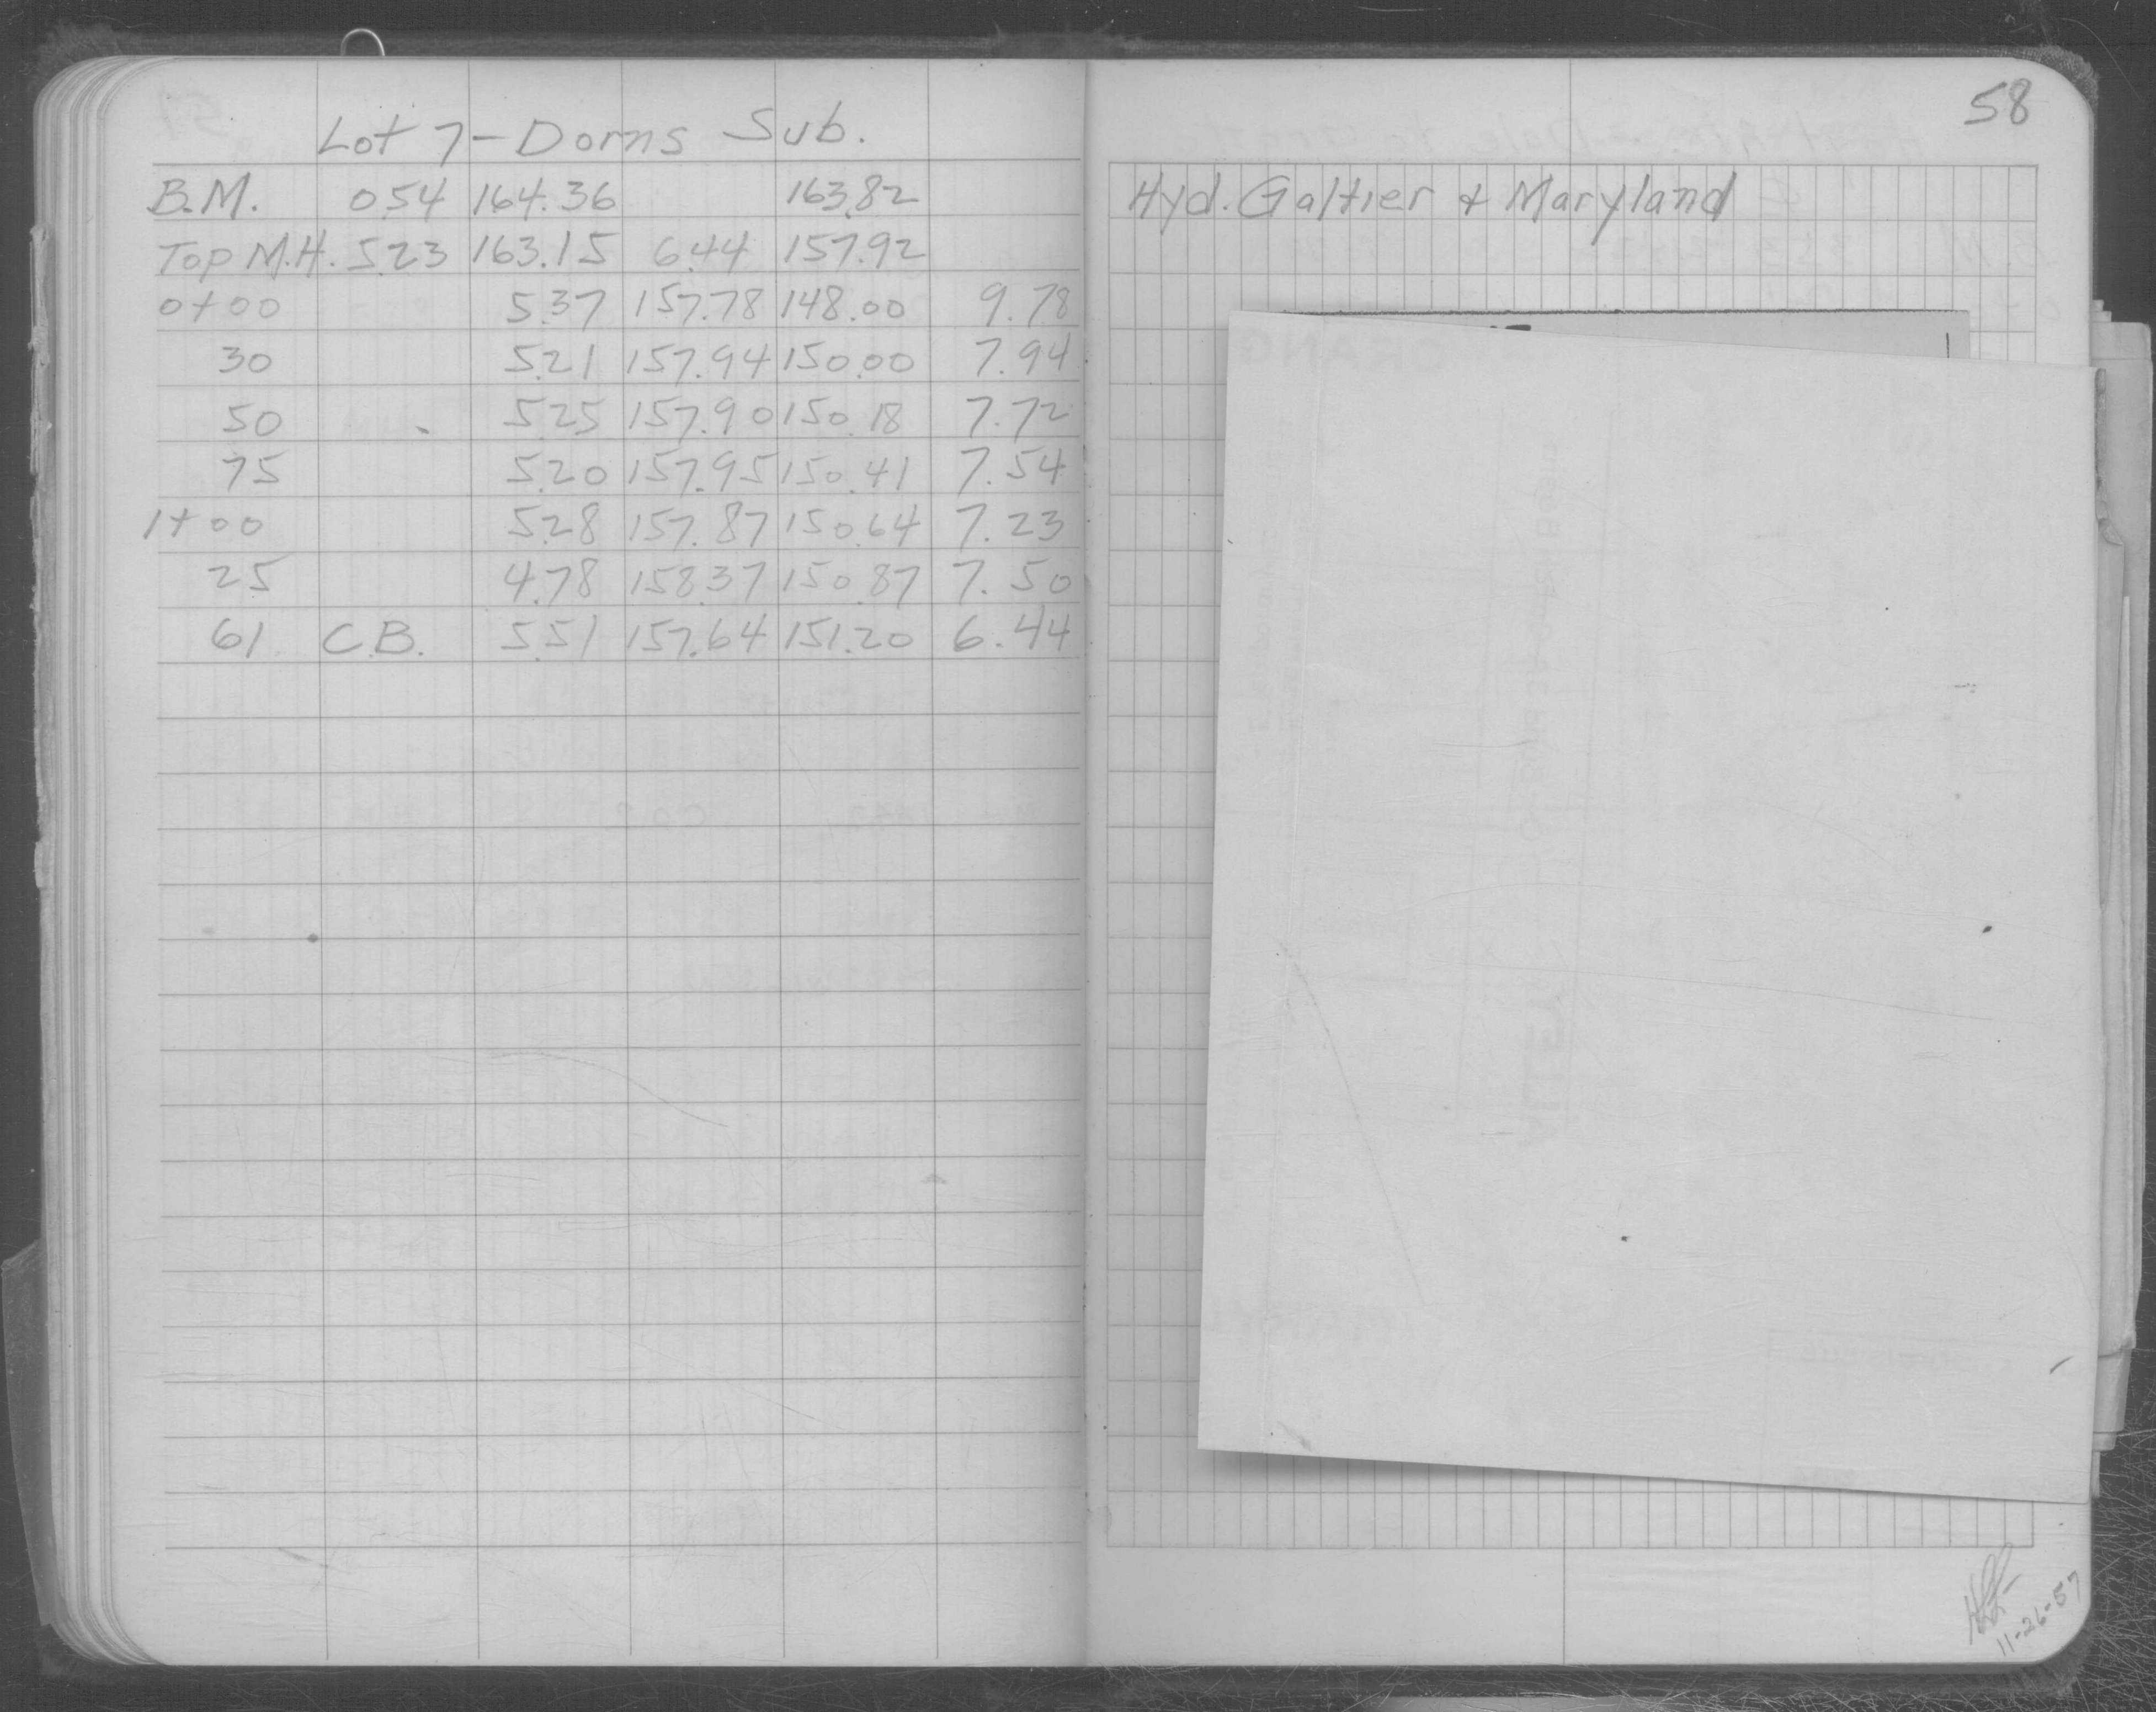 Lot 7 - Dorns Sub.
B.M. 0.54 164.36 163.82
Top M.H. 5.23 163.15 6.44 157.92
0+00 5.37 157.78 148.00 9.78
30 5.21 157.94 150.00 7.94
50 5.25 157.90 150.18 7.72
75 5.20 157.95 150.41 7.54
1+00 5.28 157.87 150.64 7.23
25 4.78 158.37 150.87 7.50
61 C.B. 5.51 157.64 151.20 6.44
58
Hyd. Galtier & Maryland
11-26-57